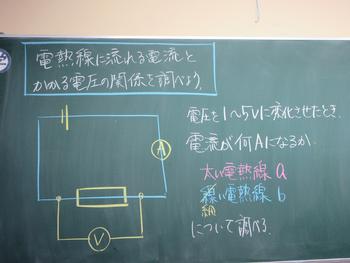 電熱線に流れる電流と
かかる電圧の関係を調べよう。
電圧を1~5Vに変化させたとき、
電流が何Aになるか
太い電熱線 a
細い電熱線 b
細
について調べる。
A
V